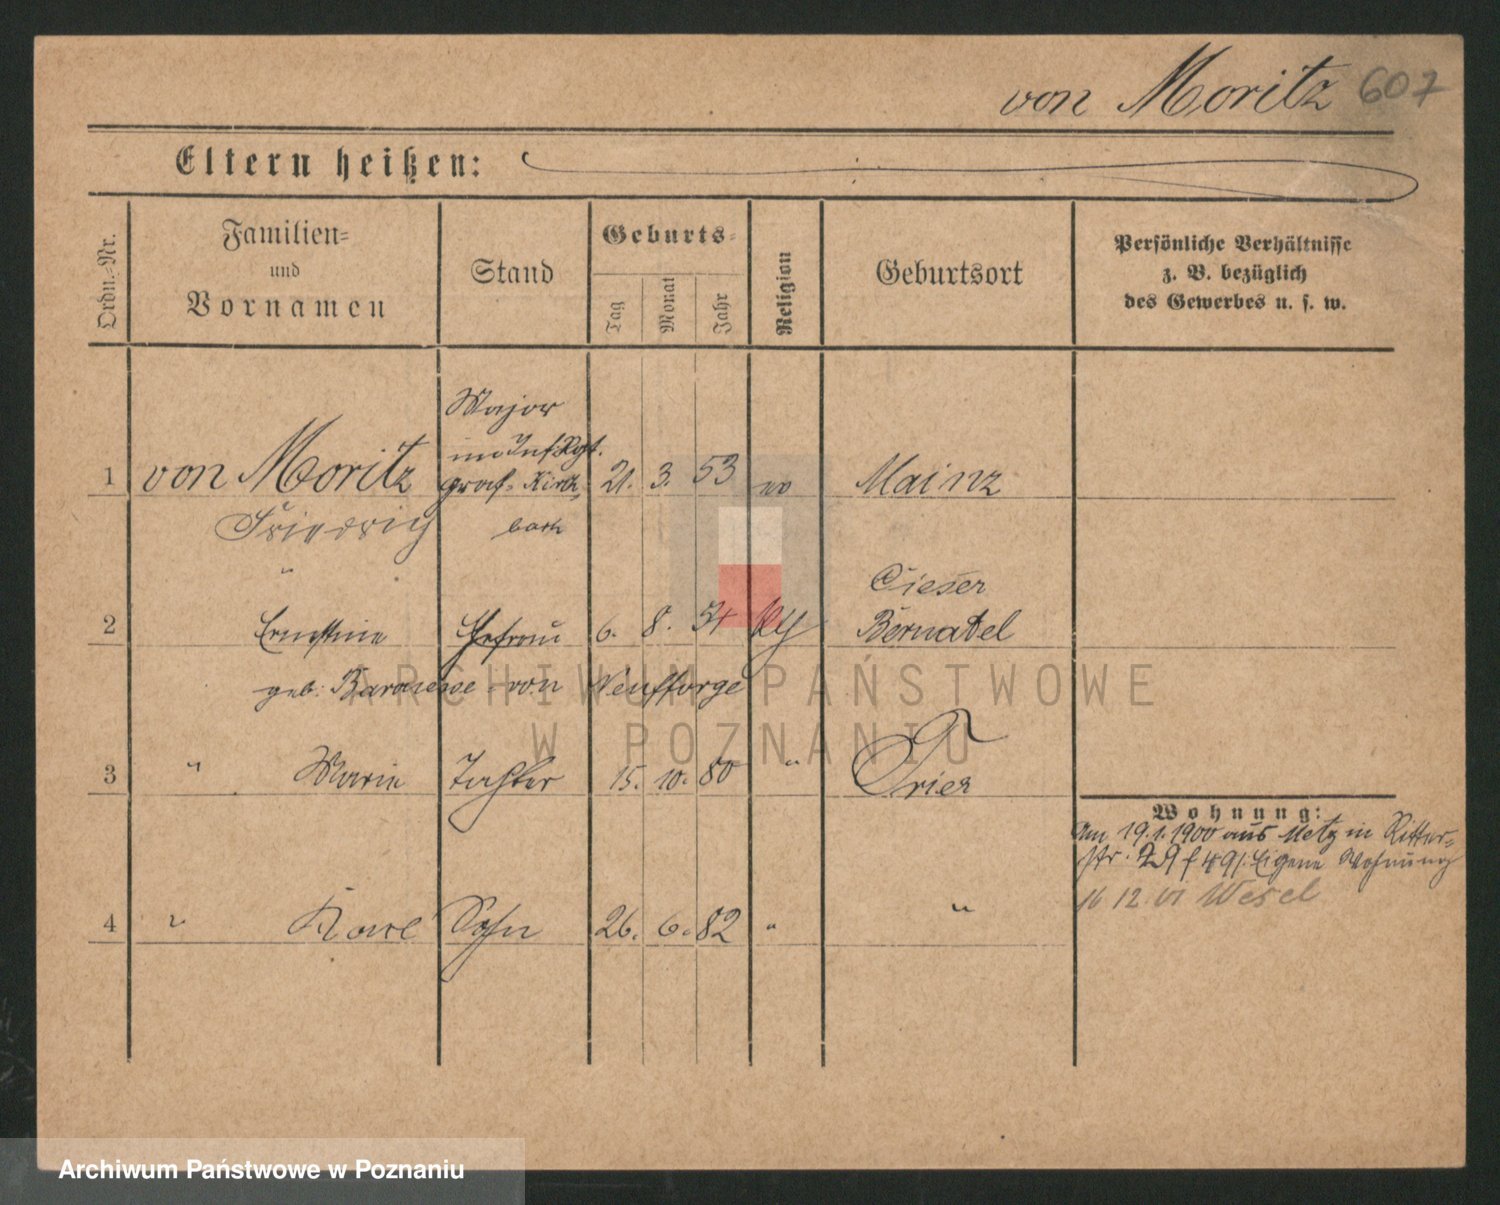 von Moritz 607
Eltern heißen:
Ordn.-Nr.
Familien-
und
Vornamen
Stand
Geburts-
Tag
Monat
Jahr
Religion
Geburtsort
Persönliche Verhältnisse
z. B. bezüglich
des Gewerbes u. s. w.
Major
im Inf. Rgt.
1 von Moritz graf. Kirch- 21. 3. 53 ev Mainz
Friedrich bach
"
2 Ernestine Ehefrau 6. 8. 54 Bernatel
geb. Baronesse von Neufforge
3 " Marie Tochter 15. 10. 80 " Trier
4 " Karl Sohn 26. 6. 82 " "
Wohnung:
Am 19.1.1900 aus Metz in Ritter-
str. Eigene Wohnung
16 12. 01 Wesel
ARCHIWUM PAŃSTWOWE
W POZNANIU
Archiwum Państwowe w Poznaniu